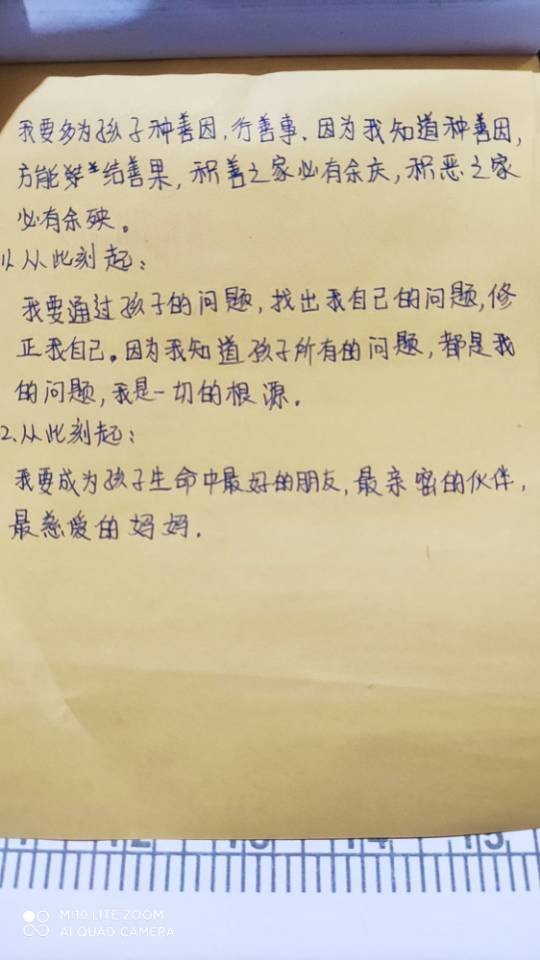 我要多为孩子种善因，行善事、因为我知道种善因，
方能结善果，积善之家必有余庆，积恶之家
必有余殃。
1、从此刻起：
我要通过孩子的问题，找出我自己的问题，修
正我自己。因为我知道孩子所有的问题，都是我
的问题，我是一切的根源。
2、从此刻起：
我要成为孩子生命中最好的朋友，最亲密的伙伴，
最慈爱的妈妈.
12 13 14 15
MI 10 LITE ZOOM
AI QUAD CAMERA